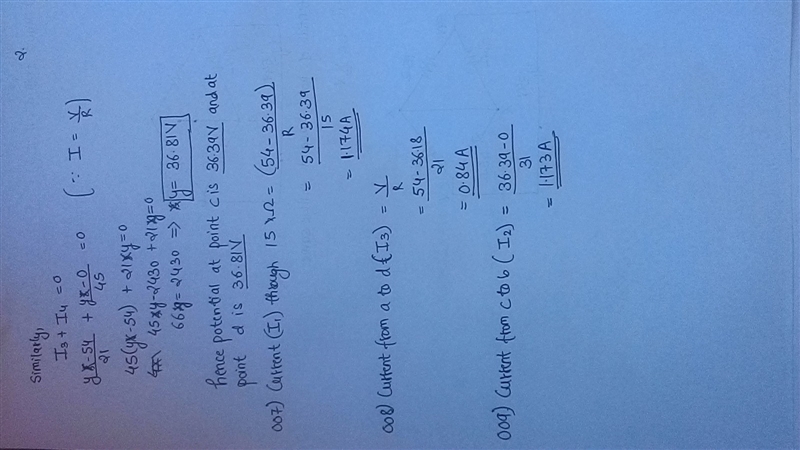 2.
Similarly,
I3 + I4 = 0
y-54/21 + y-0/45 = 0 (∵ I = V/R)
45(y-54) + 21y = 0
45y - 2430 + 21y = 0
66y = 2430 => y = 36.81V
hence potential at point c is 36.39V and at
point d is 36.81V
007) Current (I1) through 15 Ω = (54-36.39)/R
= 54-36.39/15
= 1.174A
008) Current from a to d (I3) = V/R
= 54-36.18/21
= 0.84A
009) Current from c to b (I2) = 36.39-0/31
= 1.173A